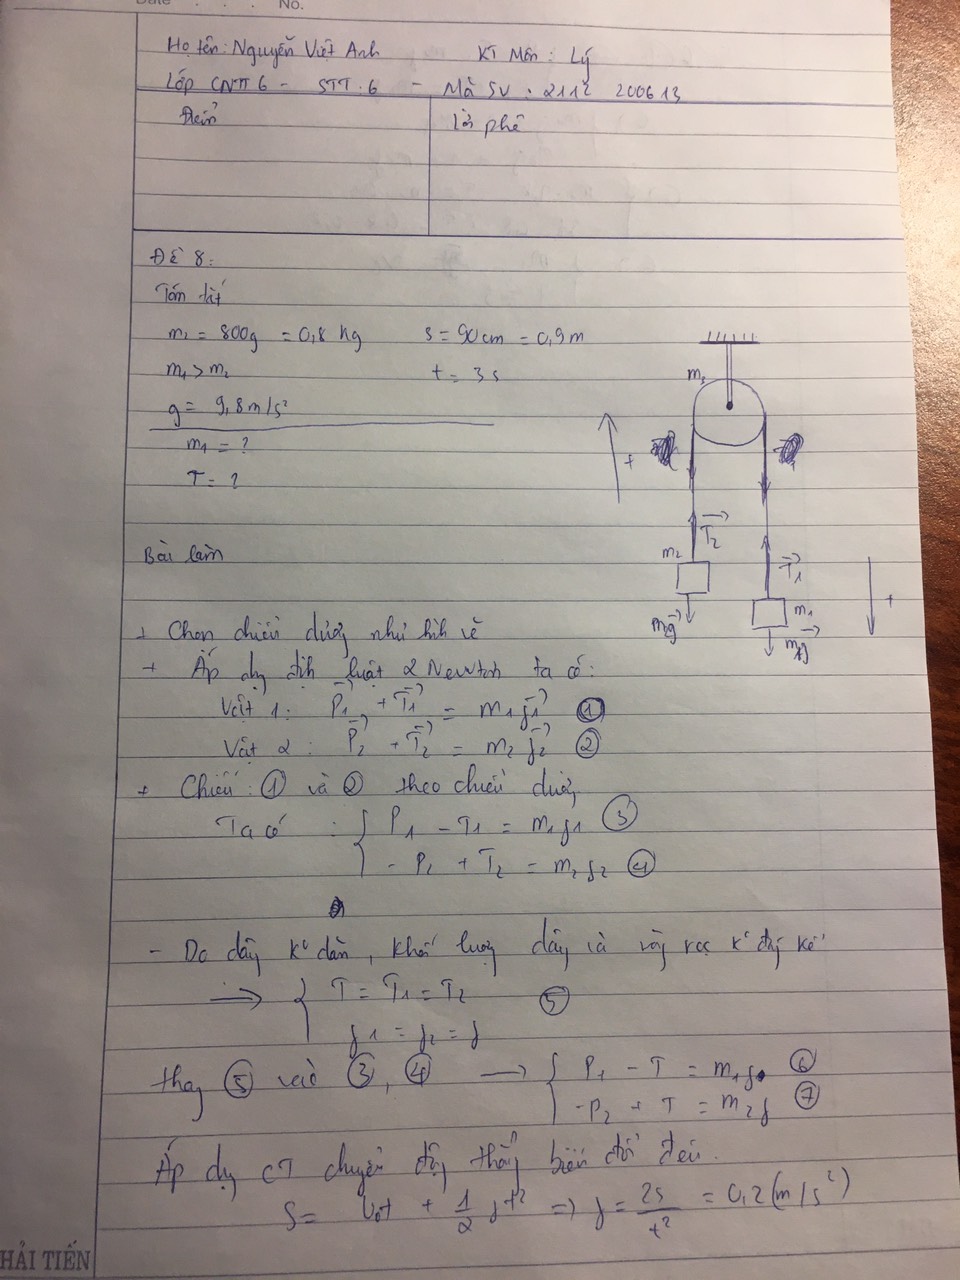 Date . . . No.
Họ tên: Nguyễn Việt Anh KT Môn: Lý
Lớp CNTT 6 - STT: 6 - Mã SV: 2112 200613
Điểm Lời phê
Đề 8:
Tóm tắt
m₂ = 800g = 0,8 kg s = 90cm = 0,9m
m₁ > m₂ t = 3s
g = 9,8 m/s²
m₁ = ?
T = ?
m₃
+
T₂
m₂
T₁
m₁
m₂g
m₁g
+
Bài làm
+ Chọn chiều dương như hình vẽ
+ Áp dụng định luật 2 Newton ta có:
Vật 1: P₁ + T₁ = m₁j₁ ①
Vật 2: P₂ + T₂ = m₂j₂ ②
+ Chiếu: ① và ② theo chiều dương
Ta có : { P₁ - T₁ = m₁j₁ ③
- P₂ + T₂ = m₂j₂ ④
- Do dây k° dãn, khối lượng dây và ròng rọc k° đáng kể
⟹ { T = T₁ = T₂ ⑤
j₁ = j₂ = j
thay ⑤ vào ③, ④ → { P₁ - T = m₁j ⑥
-P₂ + T = m₂j ⑦
Áp dụng CT chuyển động thẳng biến đổi đều.
S = v₀t + 1/2 jt² => j = 2s/t² = 0,2 (m/s²)
HẢI TIẾN